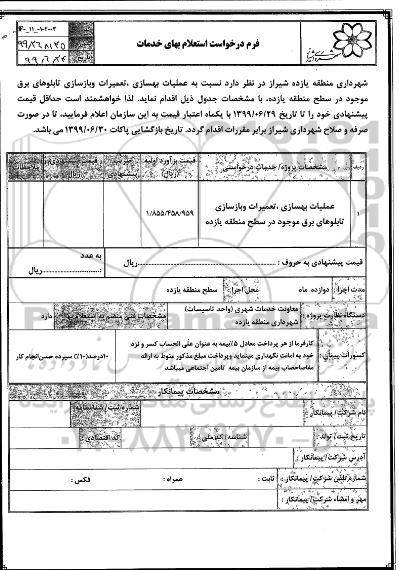 فرم درخواست استعلام بهای خدمات
شهرداری منطقه یازده شیراز در نظر دارد نسبت به عملیات بهسازی ،تعمیرات وبازسازی تابلوهای برق
موجود در سطح منطقه یازده، با مشخصات جدول ذیل اقدام نماید. لذا خواهشمند است حداقل قیمت
پیشنهادی خود را تا تاریخ ۱۳۹۹/۰۶/۲۹ با یکماه اعتبار قیمت به این سازمان اعلام فرمایید، تا در صورت
صرفه و صلاح شهرداری شیراز برابر مقررات اقدام گردد. تاریخ بازگشایی پاکات ۱۳۹۹/۰۶/۳۰ می باشد.
ردیف مشخصات پروژه/ خدمات درخواستی قیمت برآورد اولیه (ریال)
۱ عملیات بهسازی ،تعمیرات وبازسازی تابلوهای برق موجود در سطح منطقه یازده ۱/۸۵۵/۴۵۸/۹۵۹
قیمت پیشنهادی به حروف : ریال به عدد : ریال
مدت اجرا : دوازده ماه محل اجرا : سطح منطقه یازده
دستگاه نظارت پروژه : معاونت خدمات شهری (واحد تاسیسات) شهرداری منطقه یازده دارد
کسورات پیمان : کارفرما از هر پرداخت معادل ۵٪بیمه به عنوان علی الحساب کسر و نزد
خود به امانت نگهداری مینماید وپرداخت مبلغ مذکور منوط به ارائه
مفاصاحساب بیمه از سازمان بیمه تامین اجتماعی میباشد
۱۰درصد(۱۰٪) سپرده حسن انجام کار
مشخصات پیمانکار
نام شرکت/ پیمانکار : شماره ثبت/ شناسنامه :
تاریخ ثبت/ تولد : شناسه/ کدملی : کد اقتصادی :
آدرس شرکت/ پیمانکار :
شماره تلفن شرکت/ پیمانکار : ثابت : همراه : فکس :
مهر و امضاء شرکت/ پیمانکار :